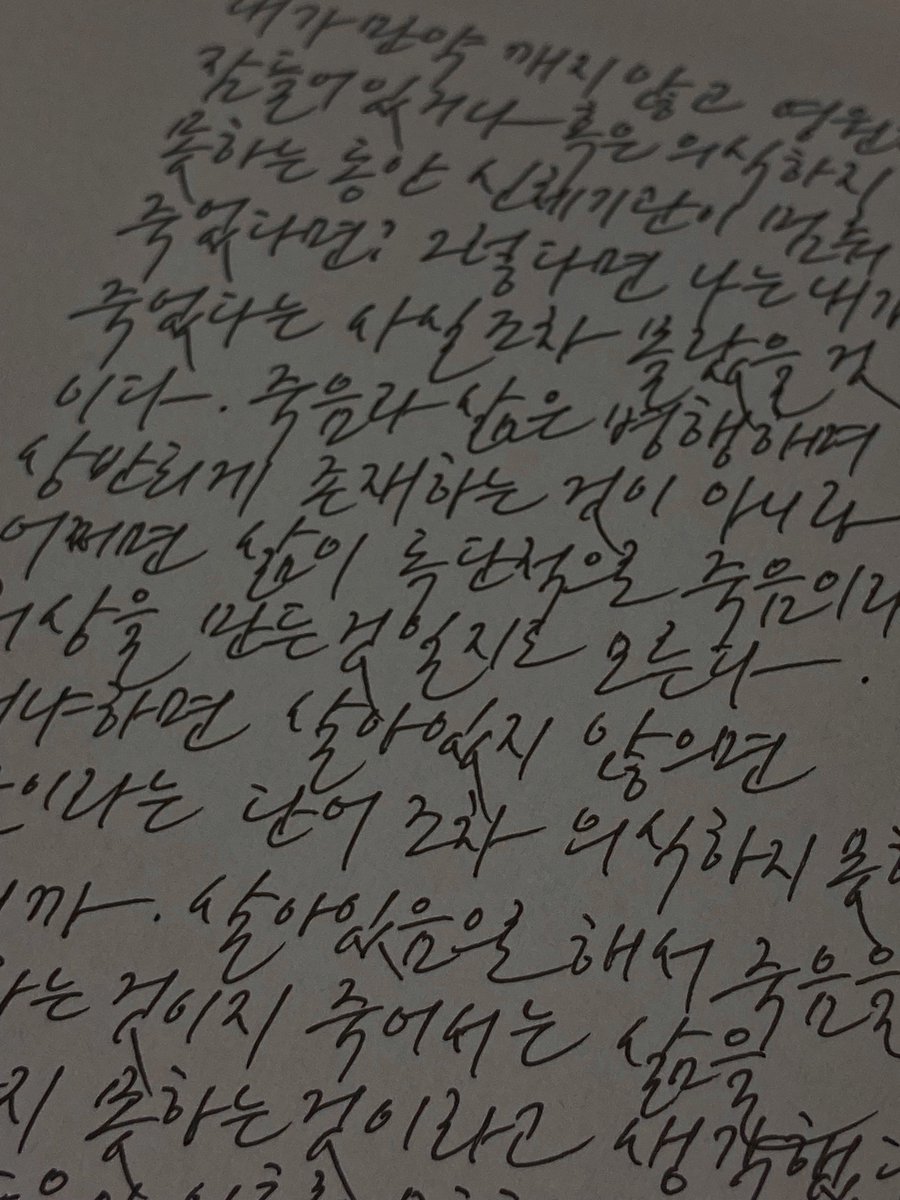 내가 만약 깨지 않고
잠들어 있거나 혹은 의식하지
못하는 동안 신체기관이 멈춰
죽었다면? 그렇다면 나는 내가
죽었다는 사실조차 몰랐을 것
이다. 죽음과 삶은 병행하며
상반되게 존재하는 것이 아니라
어쩌면 삶이 독단적으로 죽음이라
상을 만든 것일지도 모른다.
냐하면 살아있지 않으면
이라는 단어 조차 의식하지
까. 살아있음으로 해서 죽음을
는 것이지 죽어서는 삶을
지 못하는 것이라고